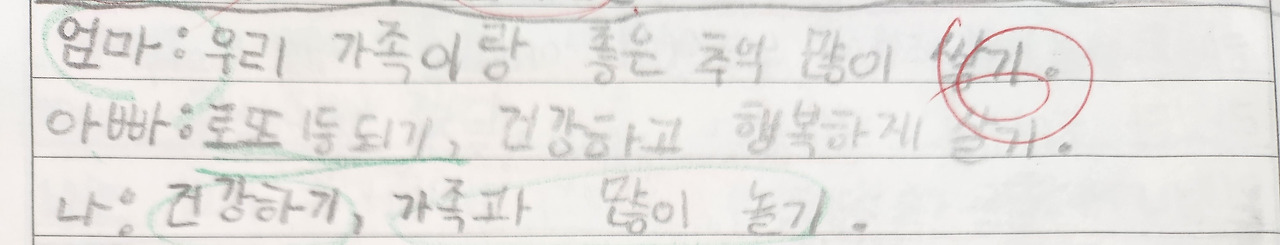 엄마: 우리 가족이랑 좋은 추억 많이 쌓기.
아빠: 로또 1등 되기, 건강하고 행복하게 살기.
나: 건강하기, 가족과 많이 놀기.